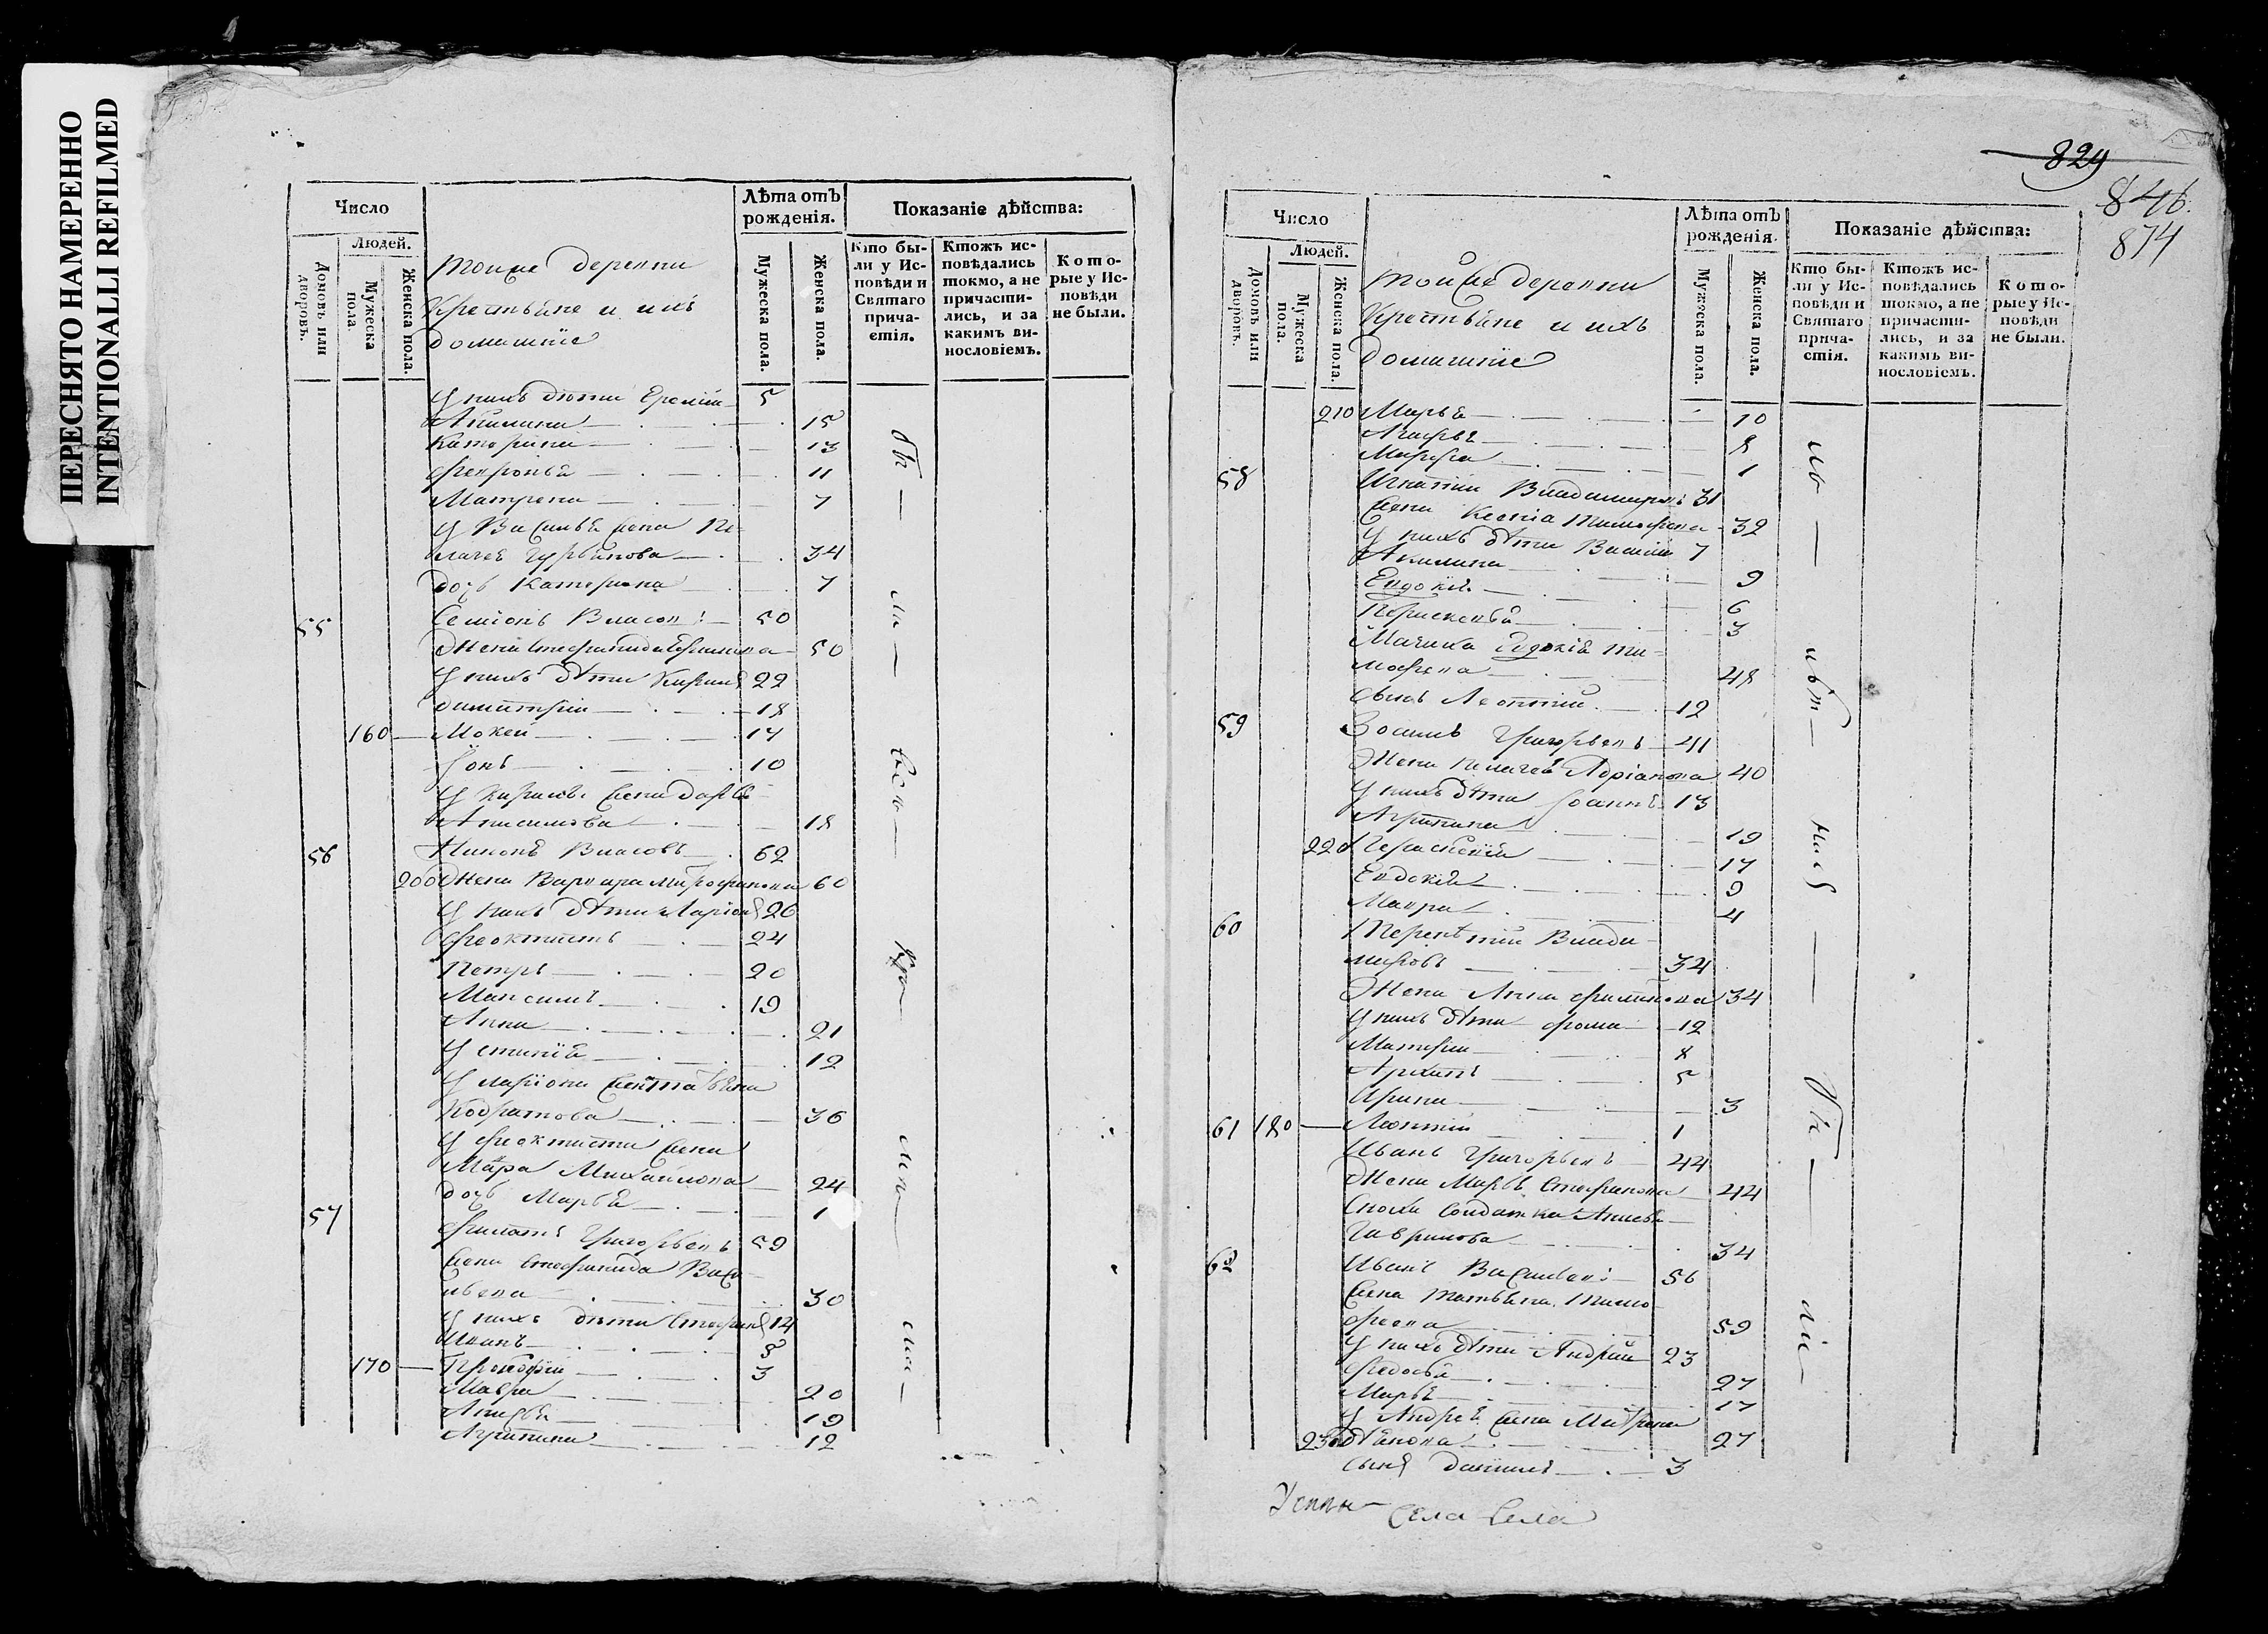 ПЕРЕСНЯТО НАМЕРЕННО
INTENTIONALLI REFILMED
Число
Людей.
Домовъ или дворовъ.
Мужеска пола.
Женска пола.
Тойже деревни
Крестьяне и ихъ
домашніе
Лѣта отъ рожденія.
Мужеска пола.
Женска пола.
Показаніе дѣйства:
Кто были у Исповѣди и Святаго причастія.
Ктожъ исповѣдались токмо, а не причастились, и за какимъ винословіемъ.
Которые у Исповѣди не были.
У нихъ дѣти Еремій 5
Акилина 15
Катерина 13
Февронья 11
Матрена 7
У Василья жена Пе-
лагея Гурьянова 34
дочь Катерина 7
55 Семіонъ Власовъ 50
Жена Стефанида 50
У нихъ дѣти Кирилъ 22
Димитрій 18
160 Мокей 14
Іонъ 10
У Кирилы жена Дарья
Анисимова 18
56 Никонъ Власовъ 62
200 Жена Варвара Митрофанова 60
У нихъ дѣти Ларіонъ 26
Феоктистъ 24
Петръ 20
Максимъ 19
Анна 21
Устинія 12
У Ларіона жена Татьяна
Кодратова 36
У Феоктиста жена
Мавра Михайлова 24
дочь Марья 1
57 Филатъ Григорьевъ 59
жена Стефанида Васи-
льева 30
У нихъ дѣти Стефанъ 14
Иванъ 5
170 Прокофій 3
Мавра 20
Анисья 19
Агрипина 12
829
846.
874
Число
Людей.
Домовъ или дворовъ.
Мужеска пола.
Женска пола.
Тойже деревни
Крестьяне и ихъ
домашніе
Лѣта отъ рожденія.
Мужеска пола.
Женска пола.
Показаніе дѣйства:
Кто были у Исповѣди и Святаго причастія.
Ктожъ исповѣдались токмо, а не причастились, и за какимъ винословіемъ.
Которые у Исповѣди не были.
210 Марья 10
Агафья 8
Марфа 1
58 Игнатій Владимировъ 31
Жена Ксенія Тимофеева 32
У нихъ дѣти Василій 7
Акилина 9
Евдокія 6
Парасковья 3
Мачиха Евдокія Ти-
мофеева 48
сынъ Леонтій 12
59 Зосимъ Григорьевъ 41
Жена Пелагея Адріанова 40
У нихъ дѣти Іоаннъ 13
Агрипина 19
220 Парасковія 17
Евдокія 9
Мавра 4
60 Терентій Влади-
мировъ 34
Жена Анна Филипова 34
У нихъ дѣти Фома 12
Матфей 8
Архипъ 5
Ирина 3
61 180 Леонтій 1
Иванъ Григорьевъ 44
Жена Марья Стефанова 44
Сноха солдатка Анисья
Гаврилова 34
62 Иванъ Васильевъ 56
Жена Татьяна Тимо-
феева 59
У нихъ дѣти Андрей 23
Федосья 27
Марья 17
У Андрея жена Матрена
230 27
сынъ Даніилъ 3
Села Села